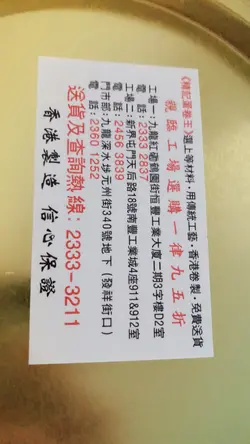 《精記蛋卷王》選上等材料・用傳統工藝・香港卷製・免費送貨
親臨工場選購一律九五折
工場一:九龍紅磡鶴園街恒豐工業大廈二期3字樓D2室
電話:2333 2837
工場二:新界屯門天后路18號南豐工業城4座911&912室
電話:2456 3839
門市部:九龍深水埗元州街340號地下(發祥街口)
電話:2360 1252
送貨及查詢熱線:2333-3211
香港製造 信心保證